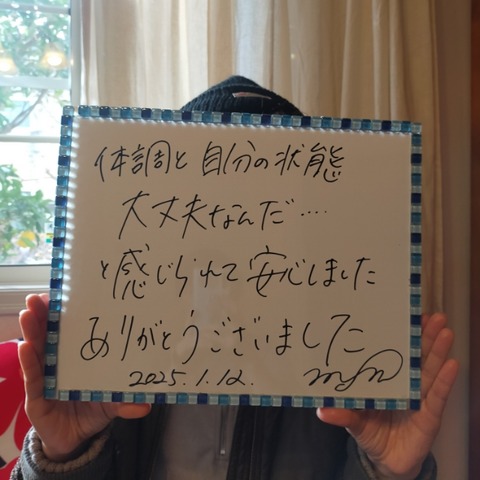 体調と自分の状態
大丈夫なんだ‥‥
と感じられて安心しました
ありがとうございました
2025.1.12.